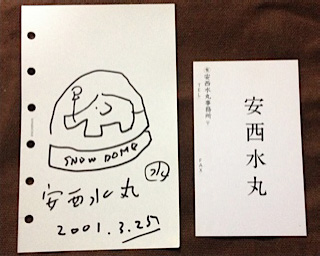 SNOW DOME
水
安西水丸
2001.3.25
安西水丸
㈲安西水丸事務所
TEL
FAX